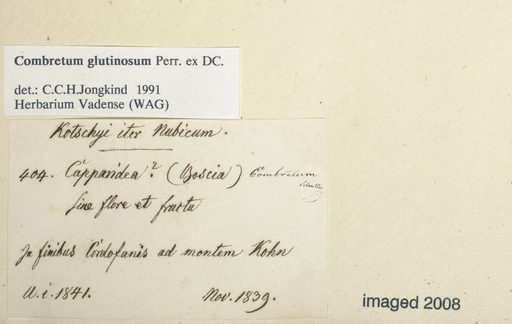 Combretum glutinosum Perr. ex DC.
det.: C.C.H.Jongkind 1991
Herbarium Vadense (WAG)
Kotschyi iter Nubicum.
404. Capparidea? (Boscia) Combretum
sine flore et fructu
In finibus Cordofanis ad montem Kohn
U. i. 1841. Nov. 1839.
imaged 2008